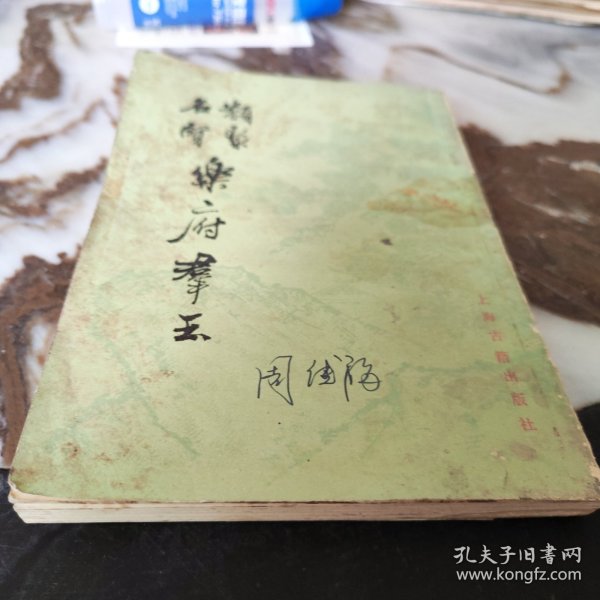 類聚
名賢
樂府羣玉
周
上海古籍出版社
孔夫子旧书网
www.kongfz.com